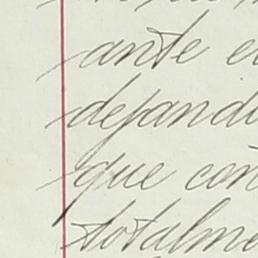 ante e
dejand
que con
totalme